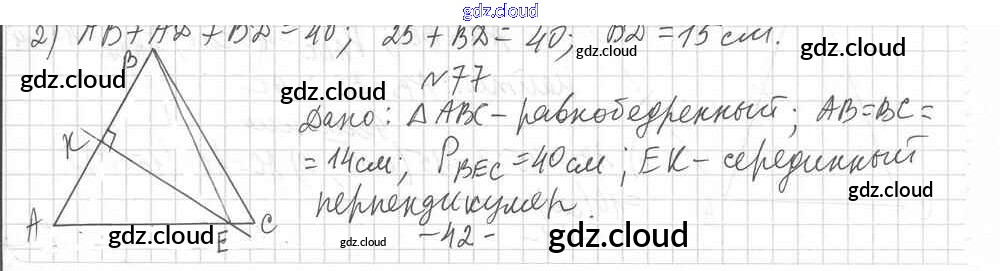 gdz.cloud
2) AB+AD+BD=40; 25+BD=40; BD=15 см.
gdz.cloud
gdz.cloud
gdz.cloud
B
N77
gdz.cloud
gdz.cloud
Дано: △ABC - равнобедренный; AB=BC=
K
=14см; P_BEC=40см; EK - серединный
gdz.cloud
перпендикуляр.
A
C
E
gdz.cloud
gdz.cloud
-42-
gdz.cloud